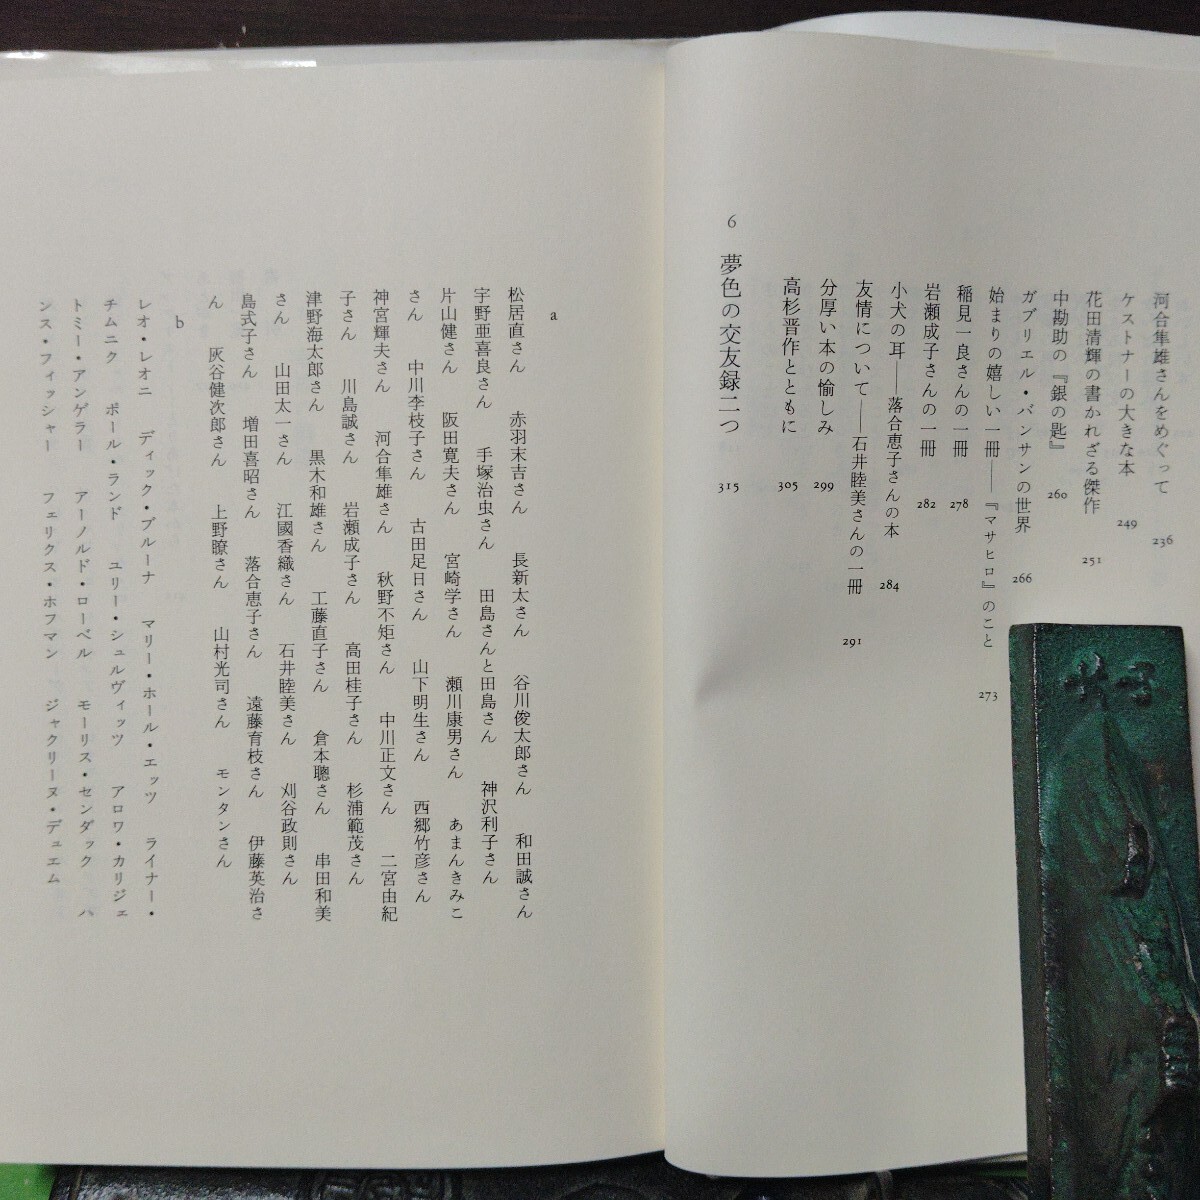 河合隼雄さんをめぐって 236
ケストナーの大きな本 249
花田清輝の書かれざる傑作 251
中勘助の『銀の匙』 260
ガブリエル・バンサンの世界 266
始まりの嬉しい一冊――『マサヒロ』のこと 273
稲見一良さんの一冊 278
岩瀬成子さんの一冊 282
小犬の耳――落合恵子さんの本 284
友情について――石井睦美さんの一冊 291
分厚い本の愉しみ 299
高杉晋作とともに 305
6 夢色の交友録二つ 315
a
松居直さん 赤羽末吉さん 長新太さん 谷川俊太郎さん 和田誠さん
宇野亜喜良さん 手塚治虫さん 田島さんと田島さん 神沢利子さん
片山健さん 阪田寛夫さん 宮崎学さん 瀬川康男さん あまんきみこ
さん 中川李枝子さん 古田足日さん 山下明生さん 西郷竹彦さん
神宮輝夫さん 河合隼雄さん 秋野不矩さん 中川正文さん 二宮由紀
子さん 川島誠さん 岩瀬成子さん 高田桂子さん 杉浦範茂さん
津野海太郎さん 黒木和雄さん 工藤直子さん 倉本聰さん 串田和美
さん 山田太一さん 江國香織さん 石井睦美さん 刈谷政則さん
島式子さん 増田喜昭さん 落合恵子さん 遠藤育枝さん 伊藤英治さ
ん 灰谷健次郎さん 上野瞭さん 山村光司さん モンタンさん
b
レオ・レオニ ディック・ブルーナ マリー・ホール・エッツ ライナー・
チムニク ポール・ランド ユリー・シュルヴィッツ アロワ・カリジェ
トミー・アンゲラー アーノルド・ローベル モーリス・センダック ハ
ンス・フィッシャー フェリクス・ホフマン ジャクリーヌ・デュエム